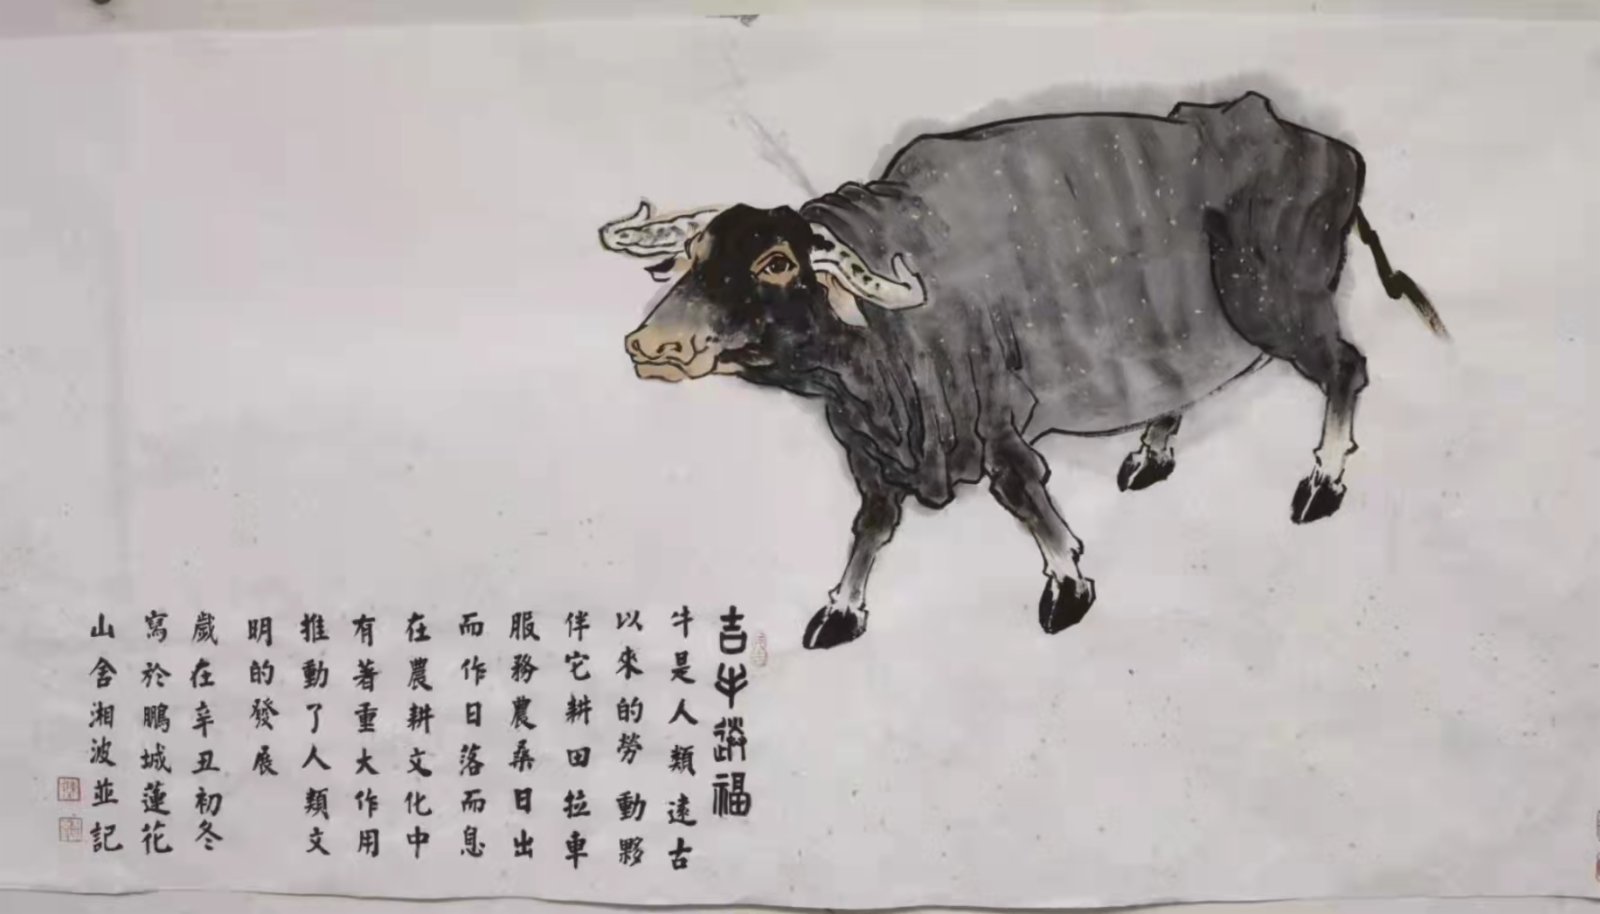 吉牛送福
牛是人類遠古
以來的勞動夥
伴它耕田拉車
服務農桑日出
而作日落而息
在農耕文化中
有著重大作用
推動了人類文
明的發展
歲在辛丑初冬
寫於鵬城蓮花
山舍湘波並記